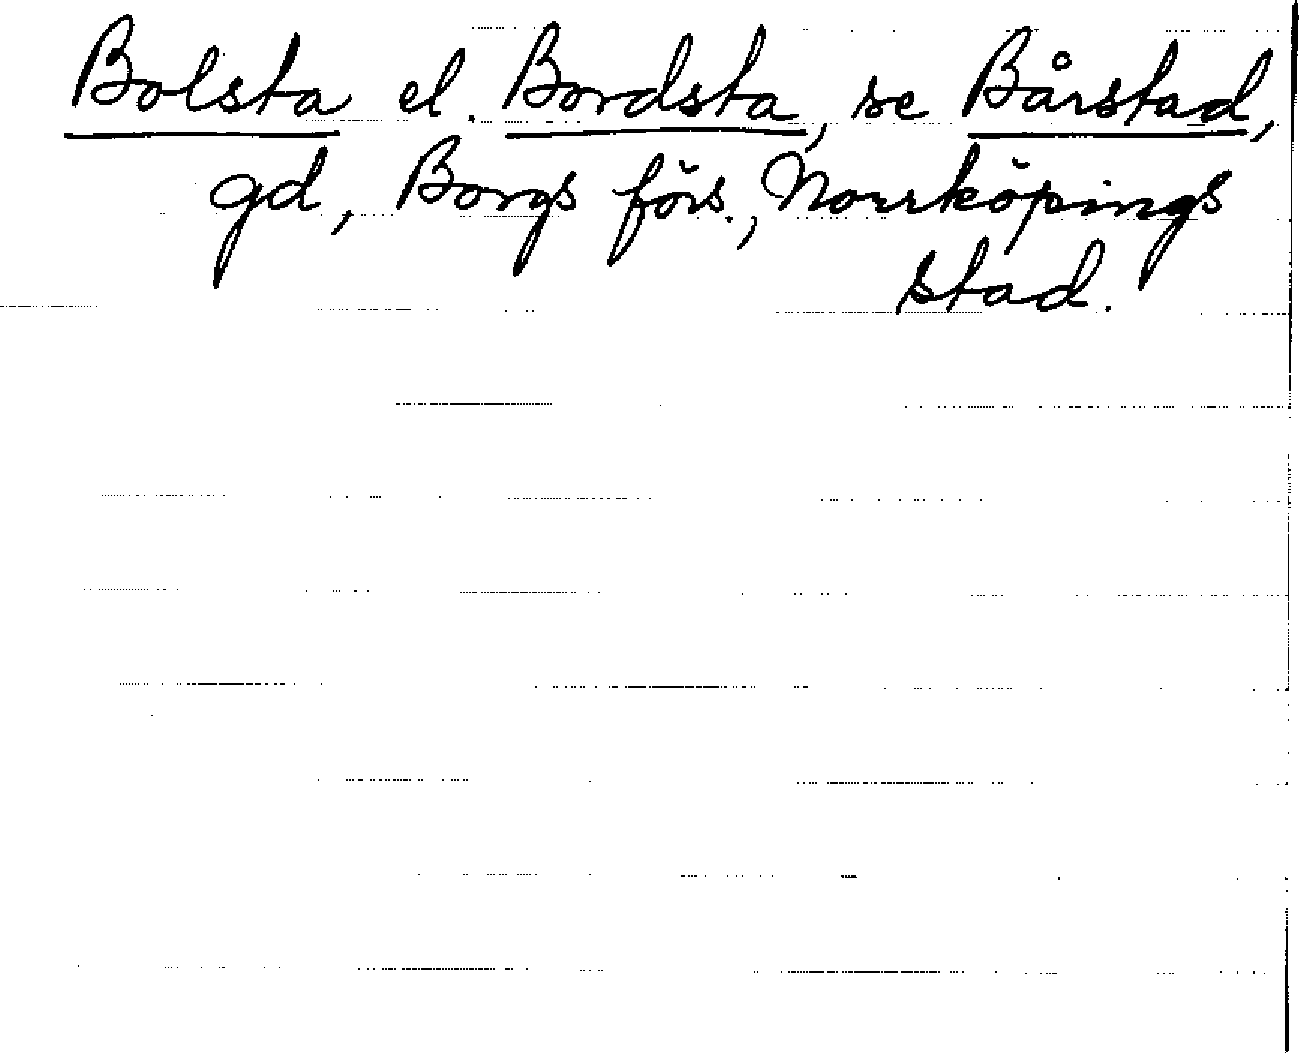 Bolsta el. Bordsta, se Bårstad,
gd, Borgs förs., Norrköpings
stad.